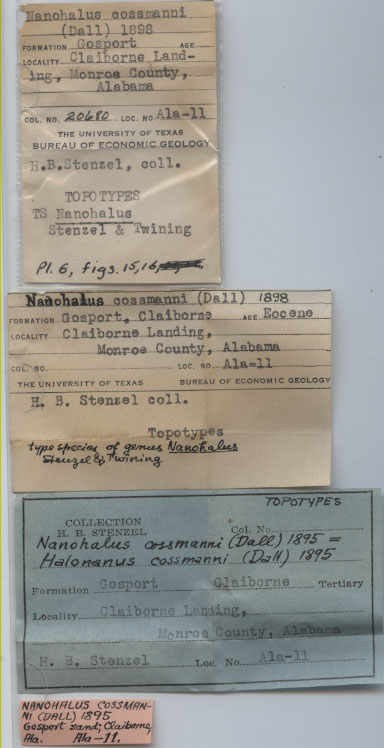 Nanohalus cossmanni
(Dall) 1898
FORMATION Gosport AGE
LOCALITY Claiborne Land-
ing, Monroe County,
Alabama
COL. NO. 20680 LOC. NO. Ala-11
THE UNIVERSITY OF TEXAS
BUREAU OF ECONOMIC GEOLOGY
H.B.Stenzel, coll.
TOPOTYPES
TS Nanohalus
Stenzel & Twining
Pl. 6, figs. 15, 16
Nanohalus cossmanni (Dall) 1898
FORMATION Gosport, Claiborne AGE Eocene
LOCALITY Claiborne Landing,
Monroe County, Alabama
COL. NO. LOC. NO. Ala-11
THE UNIVERSITY OF TEXAS BUREAU OF ECONOMIC GEOLOGY
H. B. Stenzel coll.
Topotypes
type species of genus Nanohalus
Stenzel & Twining
TOPOTYPES
COLLECTION
H. B. STENZEL Col. No.
Nanohalus cossmanni (Dall) 1895 =
Halonanus cossmanni (Dall) 1895
Formation Gosport Claiborne Tertiary
Locality Claiborne Landing,
Monroe County, Alabama
H. B. Stenzel Loc. No. Ala-11
NANOHALUS COSSMAN-
NI (DALL) 1895
Gosport sand; Claiborne,
Ala. Ala-11.